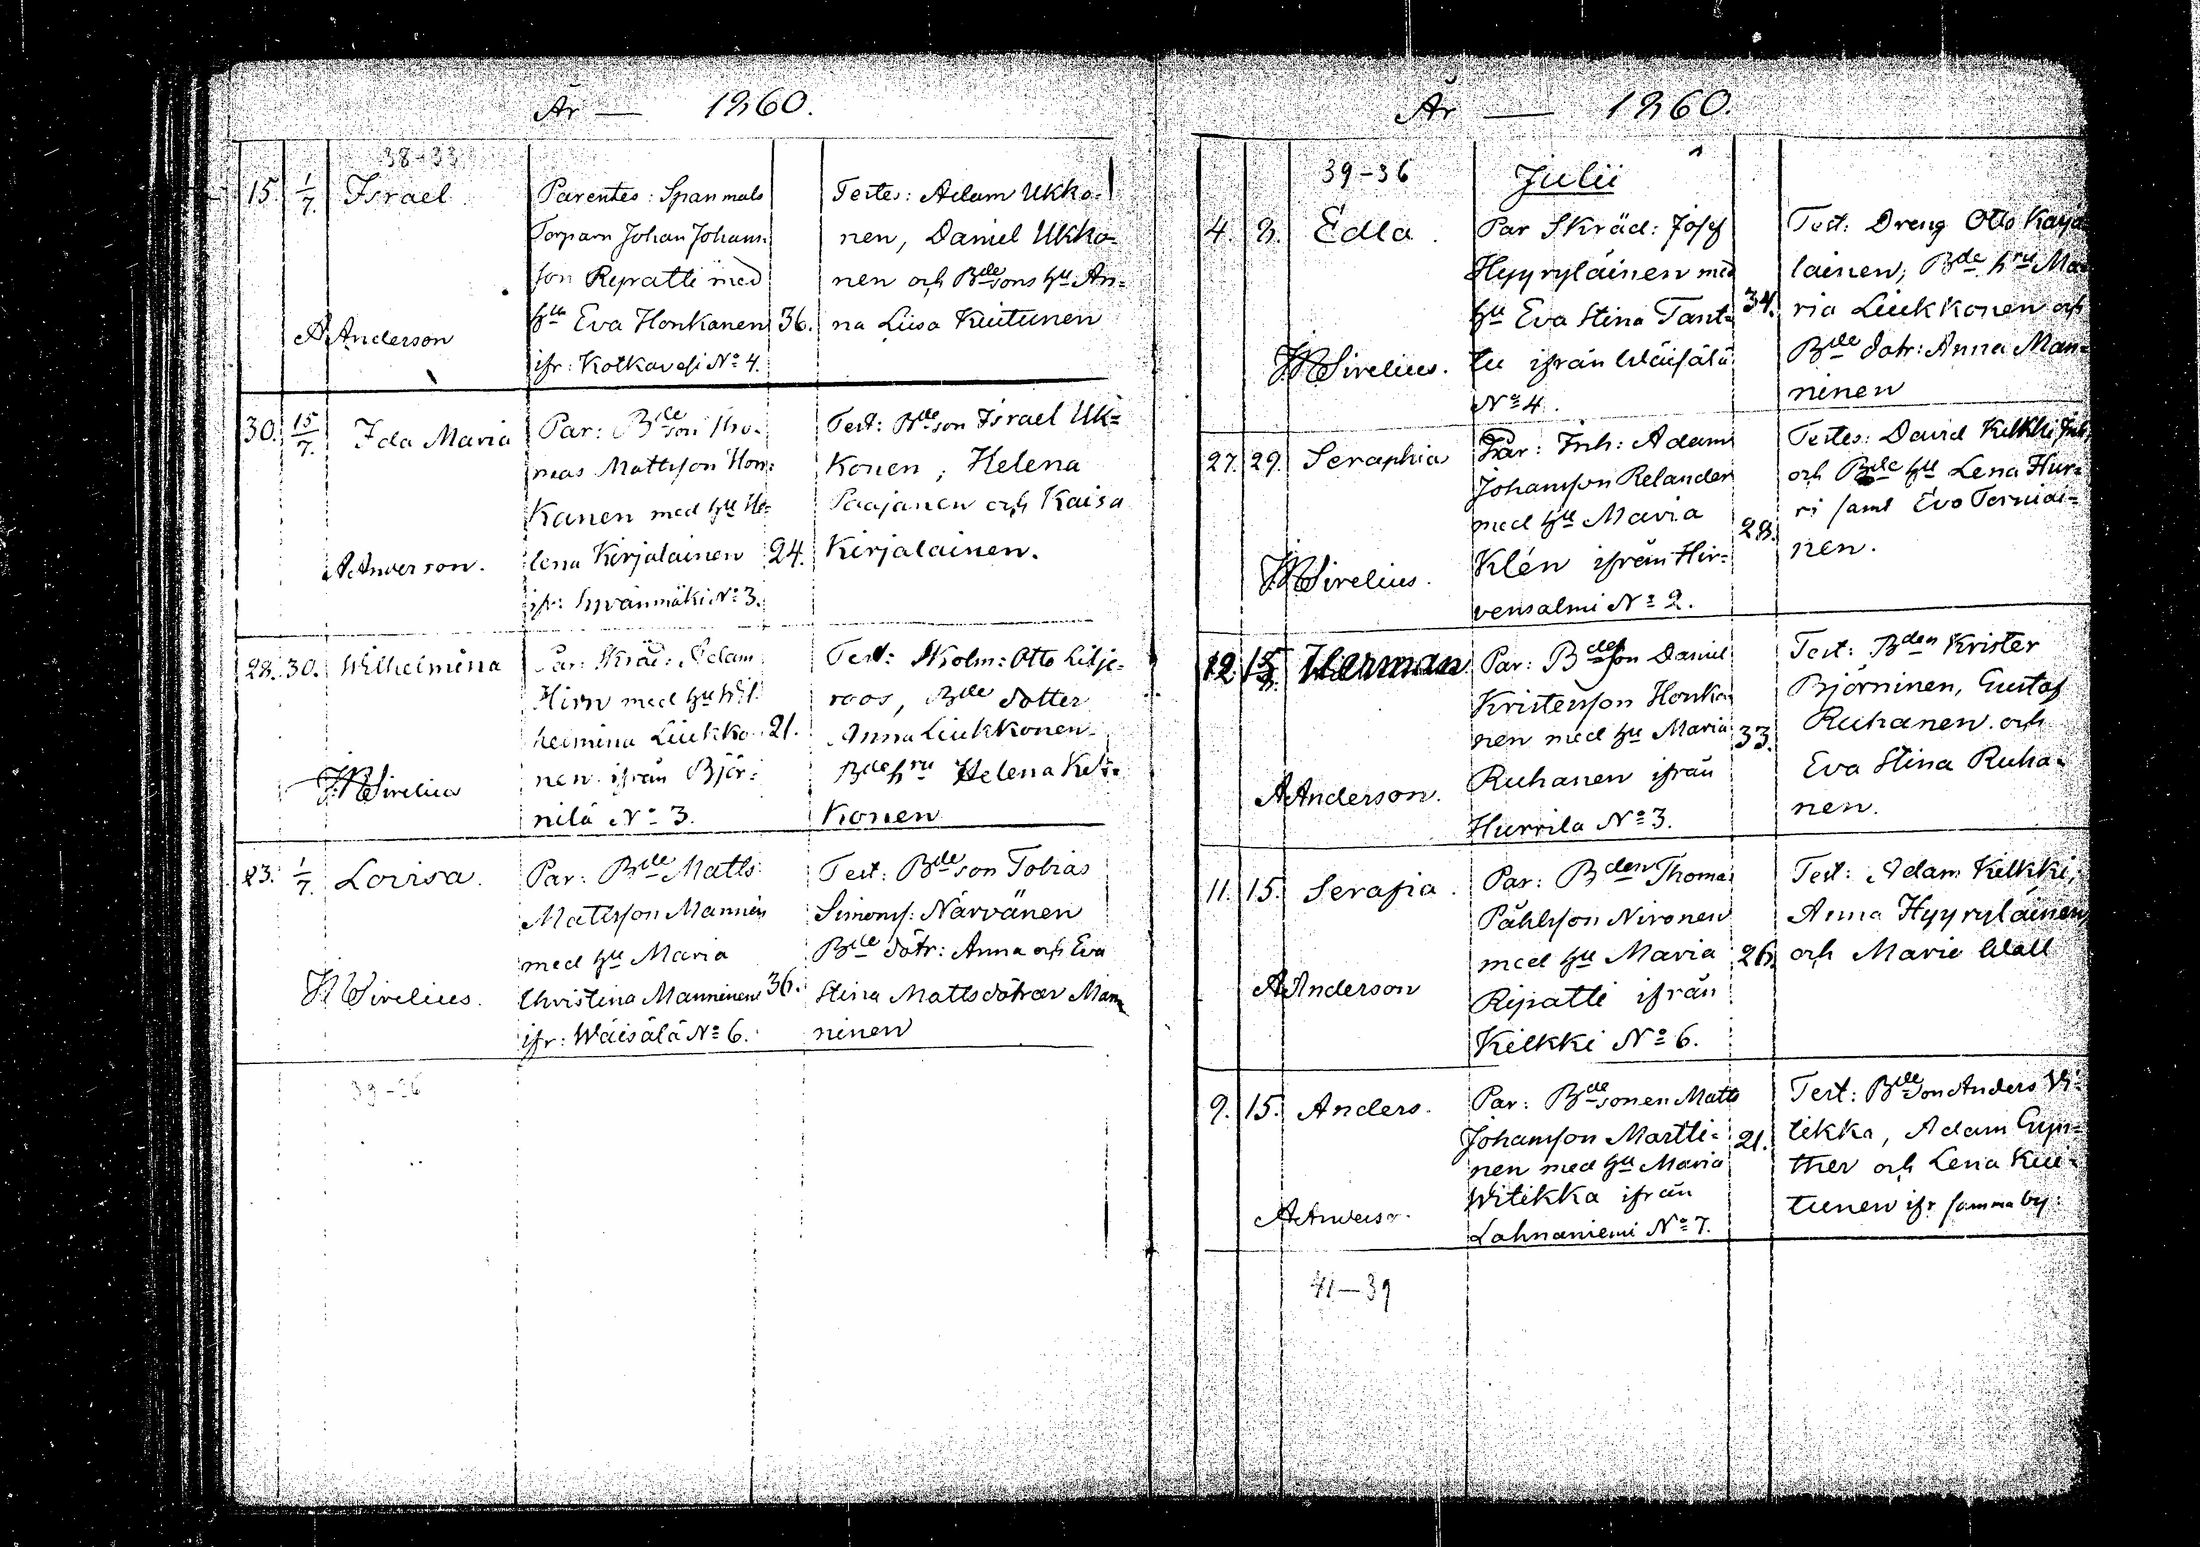 År — 1860.
38-33
15. 1/7. Israel
Parentes: Spanmåls
Torparn Johan Johans:
son Repatti med
hu Eva Honkanen 36.
ifr: Kotkavesi No 4.
Testes: Adam Ukko-
nen, Daniel Ukko-
nen och Bdesons hu An-
na Liisa Kuitunen
AAnderson
30. 15/7. Ida Maria
Par: Bdeson Tho-
mas Mattsson Hon-
kanen med hu He-
lena Kirjalainen 24.
ifr: No 3.
Test: Bdeson Israel Uk-
konen, Helena
Paajanen och Kaisa
Kirjalainen.
AAnderson.
28. 30. Wilhelmina
Par: Skräd: Adam
Hirn med hu Wil
helmina Liukko- 21.
nen ifrån Björ-
nilä No 3.
Test: Skolm: Otto Lilje-
roos, Bde dotter
Anna Liukkonen
Bde hru Helena
konen
Sirelius
23. 1/7. Lovisa.
Par: Bde Matts
Mattsson Mannin
med hu Maria
Christina Manninen 36.
ifr: Wäisälä No 6.
Test: Bdeson Tobias
Simonss: Närvänen
Bde dötr: Anna och Eva
Stina Mattsdötrar Man
ninen
Sirelius.
39-36
År — 1860.
39-36
Julii
4. 8. Edla.
Par Skräd: Josef
Hyyryläinen med
hu Eva Stina Tant- 34.
tu ifrån Wäisälä
No 4.
Test: Dreng Otto Karja
lainen, Bde hru Ma-
ria Liukkonen och
Bde dotr: Anna Man-
ninen
Sirelius.
27. 29. Seraphia
Par: Inh: Adam
Johansson Relander
med hu Maria 28.
Klén ifrån Hir-
vensalmi No 2.
Testes: David Kilkki Inh
och Bde hu Lena Hur-
ri samt Eva Torniai-
nen.
Sirelius.
12. 15/8. Herman
Par: Bdesson Daniel
Kristersson Honka
nen med hu Maria 33.
Ruhanen ifrån
Hurrila No 3.
Test: Bden Krister
Björninen, Gustaf
Ruhanen och
Eva Stina Ruha-
nen.
AAnderson.
11. 15. Serafia.
Par: Bden Thomas
Påhlsson Nironen
med hu Maria 26.
Ripatti ifrån
Kilkki No 6.
Test: Adam Kilkki,
Anna Hyyryläinen
och Maria Wall
AAnderson
9. 15. Anders.
Par: Bdesonen Matts
Johansson Martti- 21.
nen med hu Maria
Witikka ifrån
Lahnaniemi No 7.
Test: Bdeson Anders Wi-
tikka, Adam Gyn-
ther och Lena Kui-
tunen ifr samma by.
AAnderson.
41-39